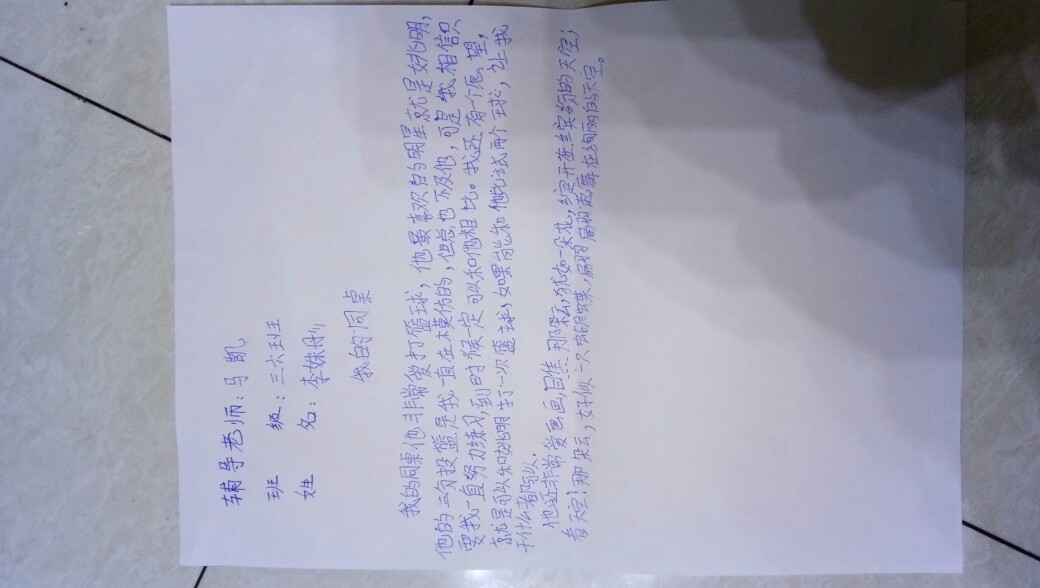 辅导老师：马凯
班 级：三六班
姓 名：李姝彤
我的同桌
我的同桌他非常爱打篮球，他最喜欢的明星就是姚明，
他的三分投篮是我一直在模仿的，但总也不及他，可是我相信只
要我一直努力练习，到时候一定可以和他相比。我还有一个愿望，
就是可以和姚明打一次篮球，如果能和他比试两个球，让我
干什么都可以。
他还非常爱画画，自焦那朵云，犹如一朵花，绽开在缤纷的天空；
看天空！那朵云，好似一只蝴蝶，扇翅起舞在绚丽的天空。